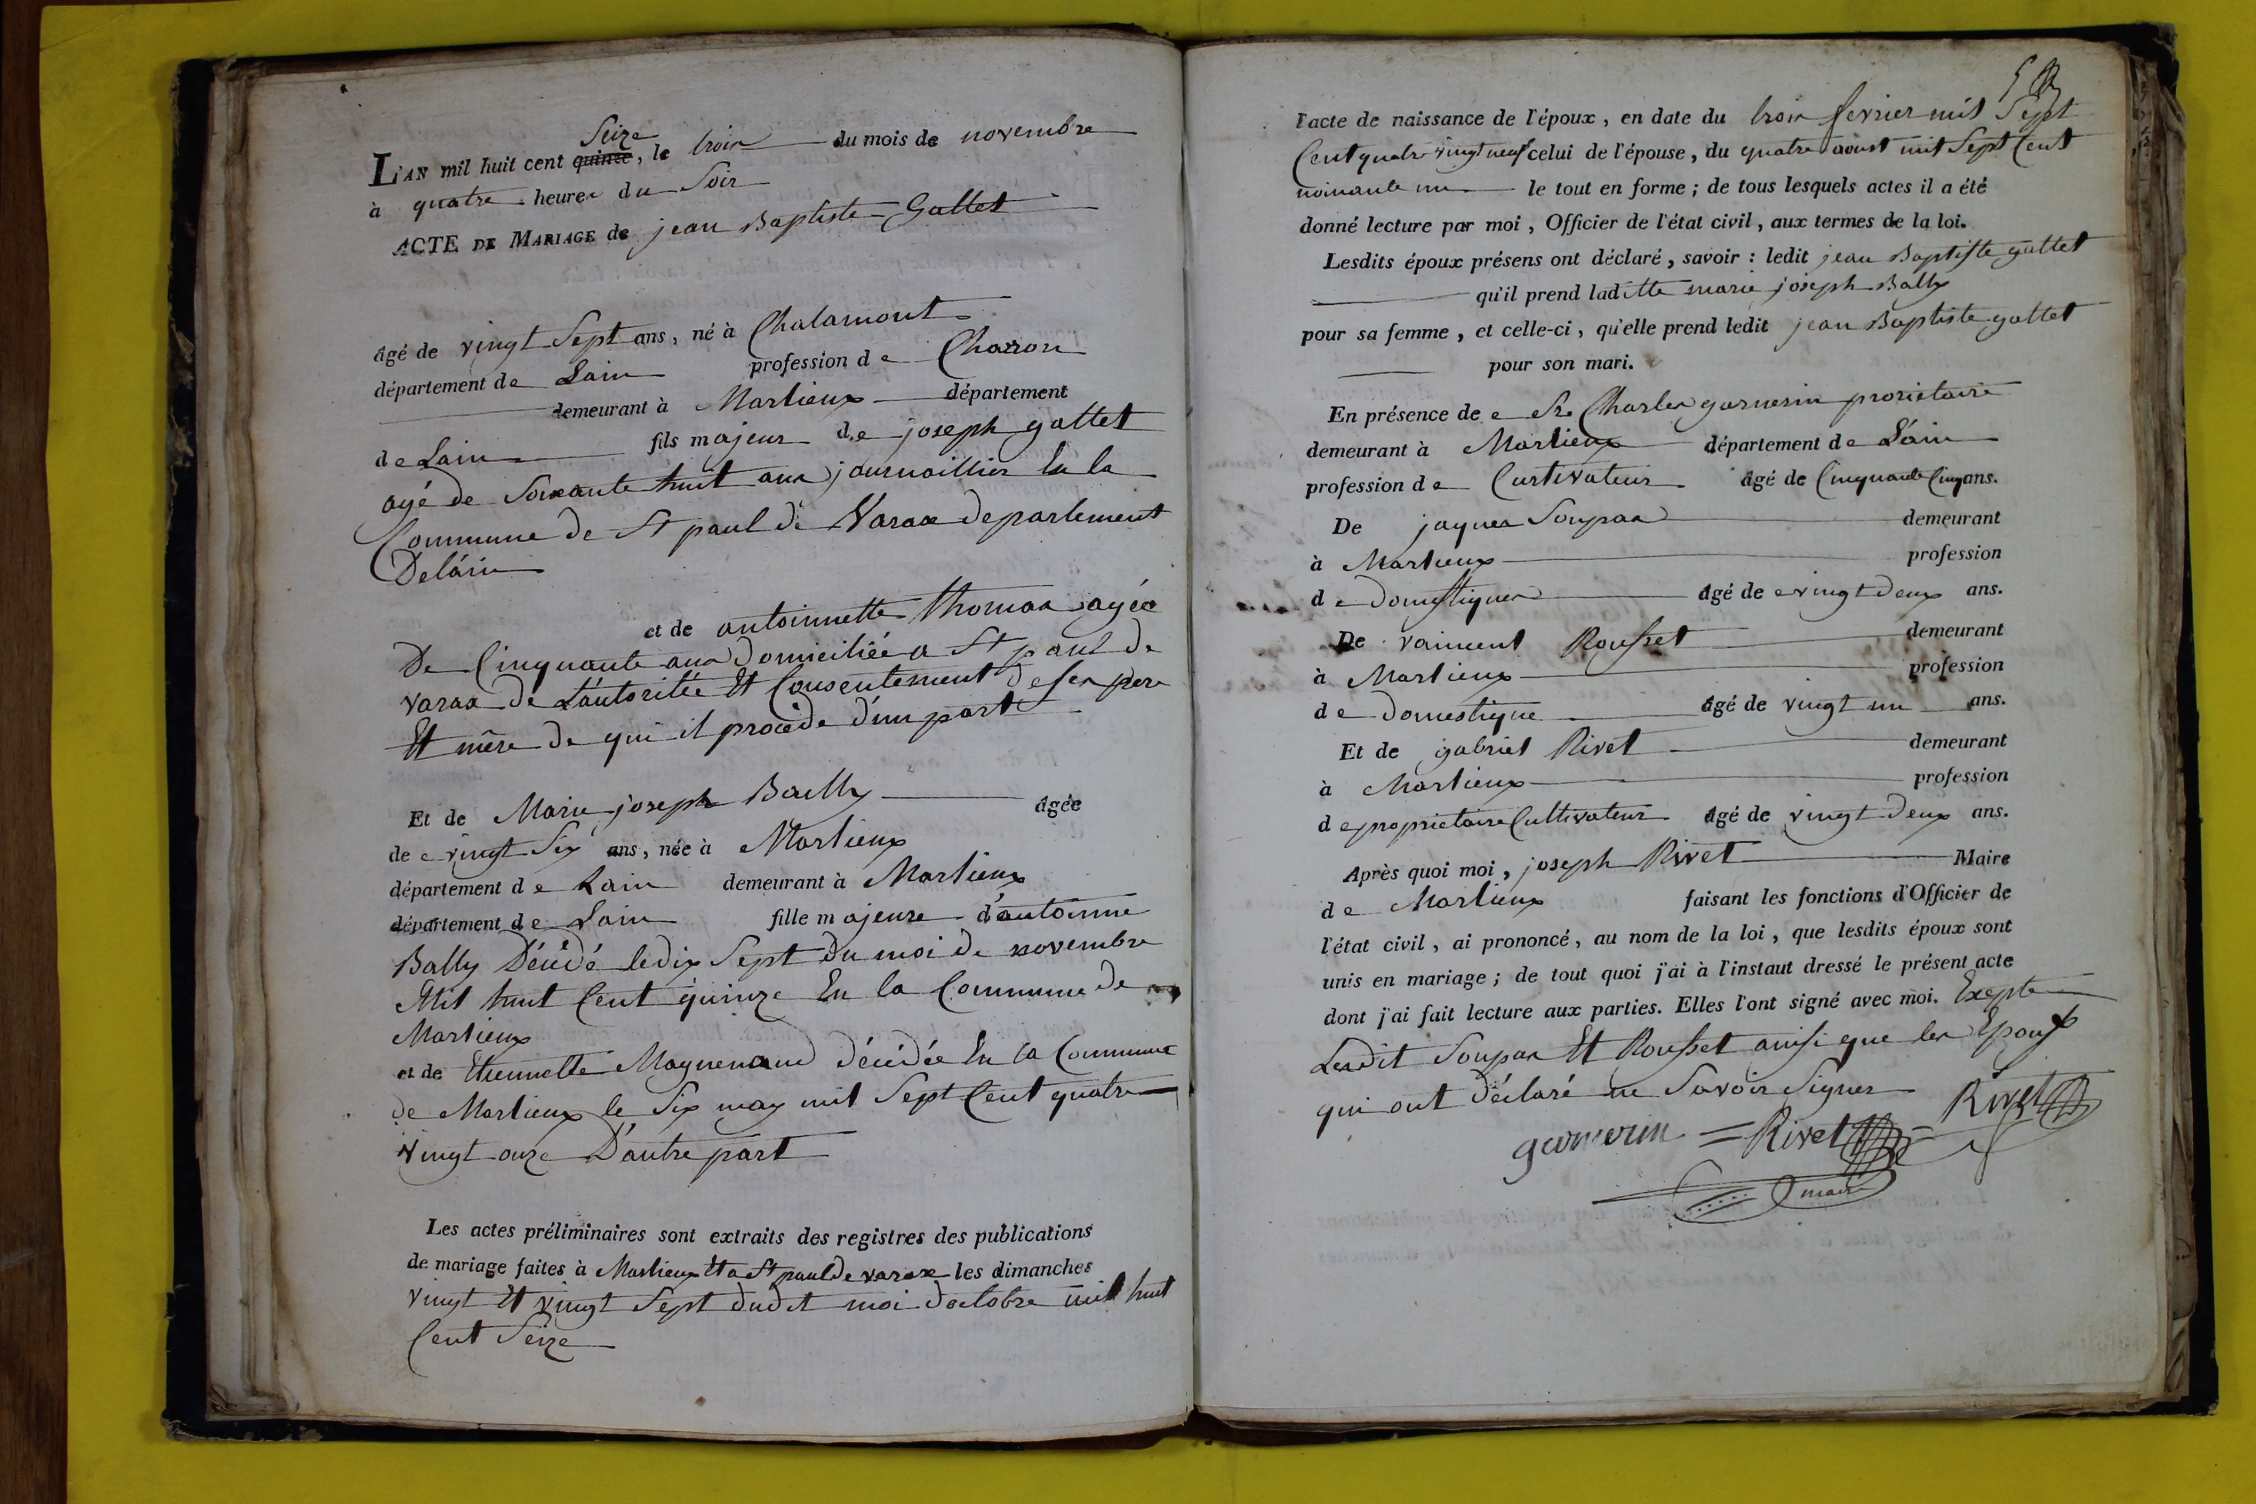 Seize
L'AN mil huit cent quinze, le trois du mois de novembre
à quatre heures du Soir
ACTE DE MARIAGE de jean Baptiste Gallet
âgé de vingt Sept ans, né à Chalamont
département de Lain profession de Charon
demeurant à Marlieux département
de Lain fils majeur de joseph gallet
agé de Soixante huit ans journaillier En la
Commune de St paul de Varax departement
Delain
et de antoinnette thomas agée
De Cinquante ans Domiciliée a St paul de
varax de L'autoritée Et Consentement de ses pere
Et mère de qui il procède d'un part
Et de Marie joseph Bailly âgée
de vingt Six ans, née à Marlieux
département de Lain demeurant à Marlieux
département de Lain fille majeure d'antoinne
Bally Décédé le dix Sept du moi de novembre
Mil huit Cent quinze En la Commune de
Marlieux
et de Etiennette Maynenand décédée En la Commune
de Marlieux le Six may mil Sept Cent quatre
vingt onze D'autre part
Les actes préliminaires sont extraits des registres des publications
de mariage faites à Marlieux Et a St paul de varax les dimanches
vingt Et vingt Sept dudit moi doctobre mil huit
Cent Seize
l'acte de naissance de l'époux, en date du trois fevrier mil Sept
Cent quatre vingt neuf celui de l'épouse, du quatre aoust mil Sept Cent
noinante un le tout en forme; de tous lesquels actes il a été
donné lecture par moi, Officier de l'état civil, aux termes de la loi.
Lesdits époux présens ont déclaré, savoir: ledit jean Baptiste gallet
qu'il prend laditte marie joseph Bally
pour sa femme, et celle-ci, qu'elle prend ledit jean Baptiste gallet
pour son mari.
En présence de Sr Charles garnerin proriétaire
demeurant à Marlieux département de L'ain
profession de Curtivateur âgé de Cinquante Cinq ans.
De jaques Soupas demeurant
à Marlieux profession
de Domestiques âgé de vingt Deux ans.
De vaincent Rousset demeurant
à Marlieux profession
de domestique âgé de vingt un ans.
Et de gabriel Rivet demeurant
à Marlieux profession
de proprietaire Cultivateur âgé de vingt Deux ans.
Après quoi moi, joseph Rivet Maire
de Marlieux faisant les fonctions d'Officier de
l'état civil, ai prononcé, au nom de la loi, que lesdits époux sont
unis en mariage; de tout quoi j'ai à l'instaut dressé le présent acte
dont j'ai fait lecture aux parties. Elles l'ont signé avec moi. Exepte
Lesdit Soupas Et Rousset ainsi que les Epoux
qui ont déclaré ne Savoir Signer
garnerin = Rivet = Rivet
maire